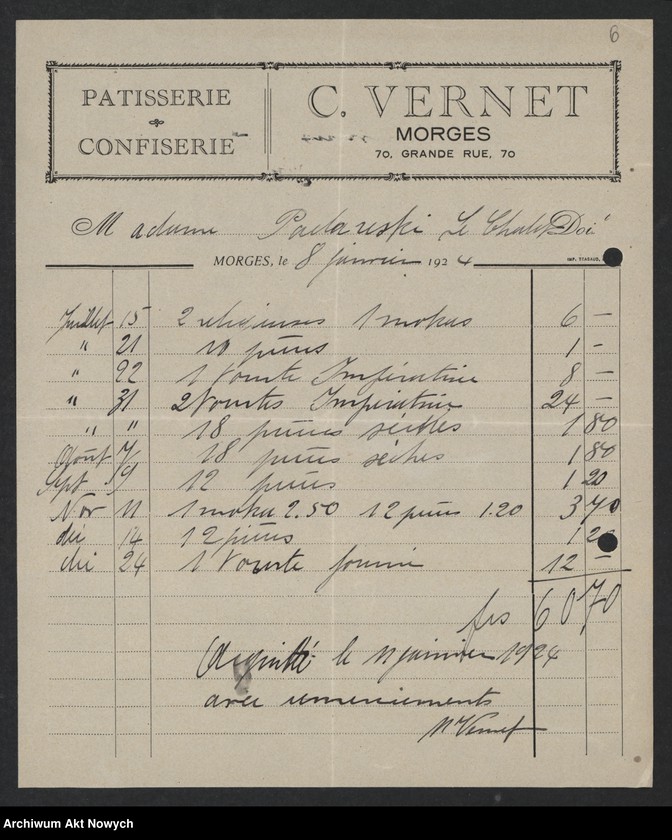 6
PATISSERIE
CONFISERIE
C. VERNET
MORGES
70, GRANDE RUE, 70
Madame Paderewski Le Chalet Doit
MORGES, le 8 janvier 1924
Juillet 15 2 religieuses 1 mokas 6 —
" 21 10 pièces 1 —
" 22 1 Tourte Impératrice 8 —
" 31 2 Tourtes Impératrice 24 —
" " 18 pièces sèches 1 80
Août 18 pièces sèches 1 80
Sept 9 12 pièces 1 20
Nov 11 1 moka 2.50 12 pièces 1.20 3 70
déc 14 12 pièces 1 20
24 1 Tourte 12 —
frs 60,70
Acquitté le 11 janvier 1924
avec remerciements
Vernet
Archiwum Akt Nowych